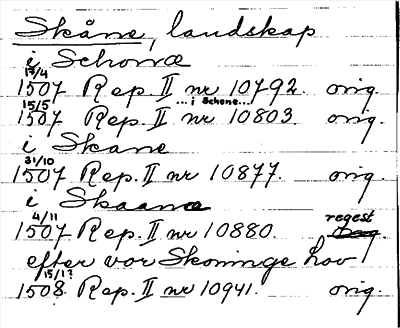 Skåne, landskap
i Schonæ
17/4
1507 Rep. II nr 10792. orig.
15/5 ... i Schone...
1507 Rep. II nr 10803. orig.
i Skane
31/10
1507 Rep. II nr 10877. orig.
i Skaanæ
4/11 regest
1507 Rep. II nr 10880.
efter vor Skoninge lov
15/1?
1508 Rep. II nr 10941. orig.